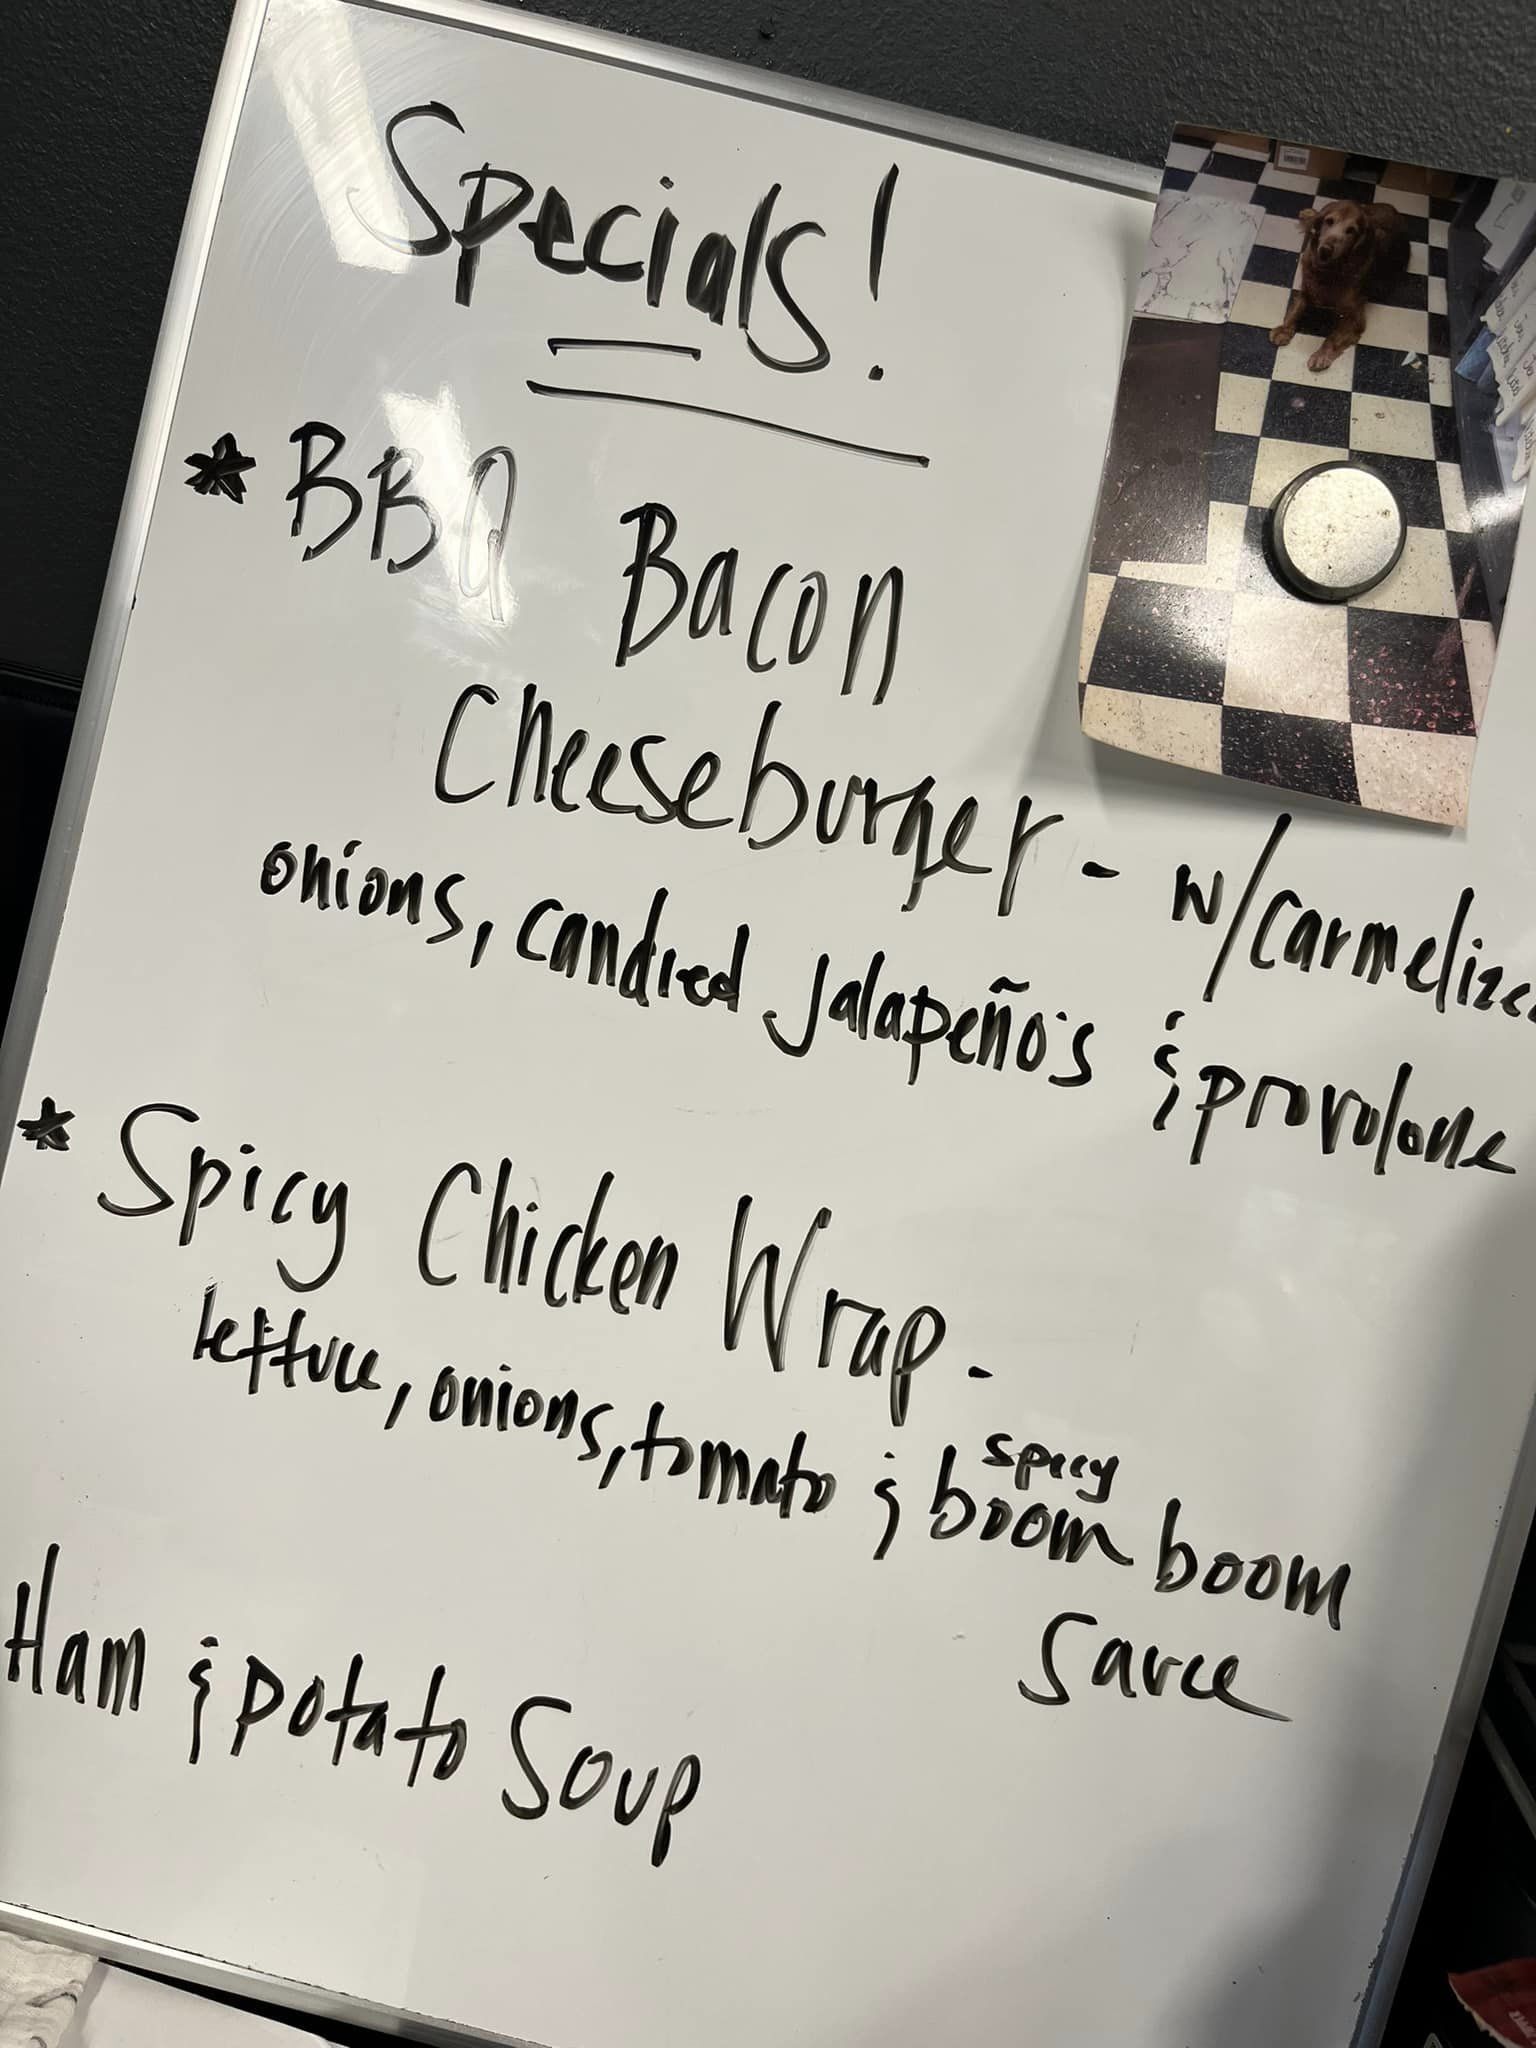 Specials!
* BBQ Bacon
Cheeseburger - w/carmelized
onions, candied jalapeño's & provolone
* Spicy Chicken Wrap -
lettuce, onions, tomato & spicy boom boom
Sauce
Ham & potato Soup